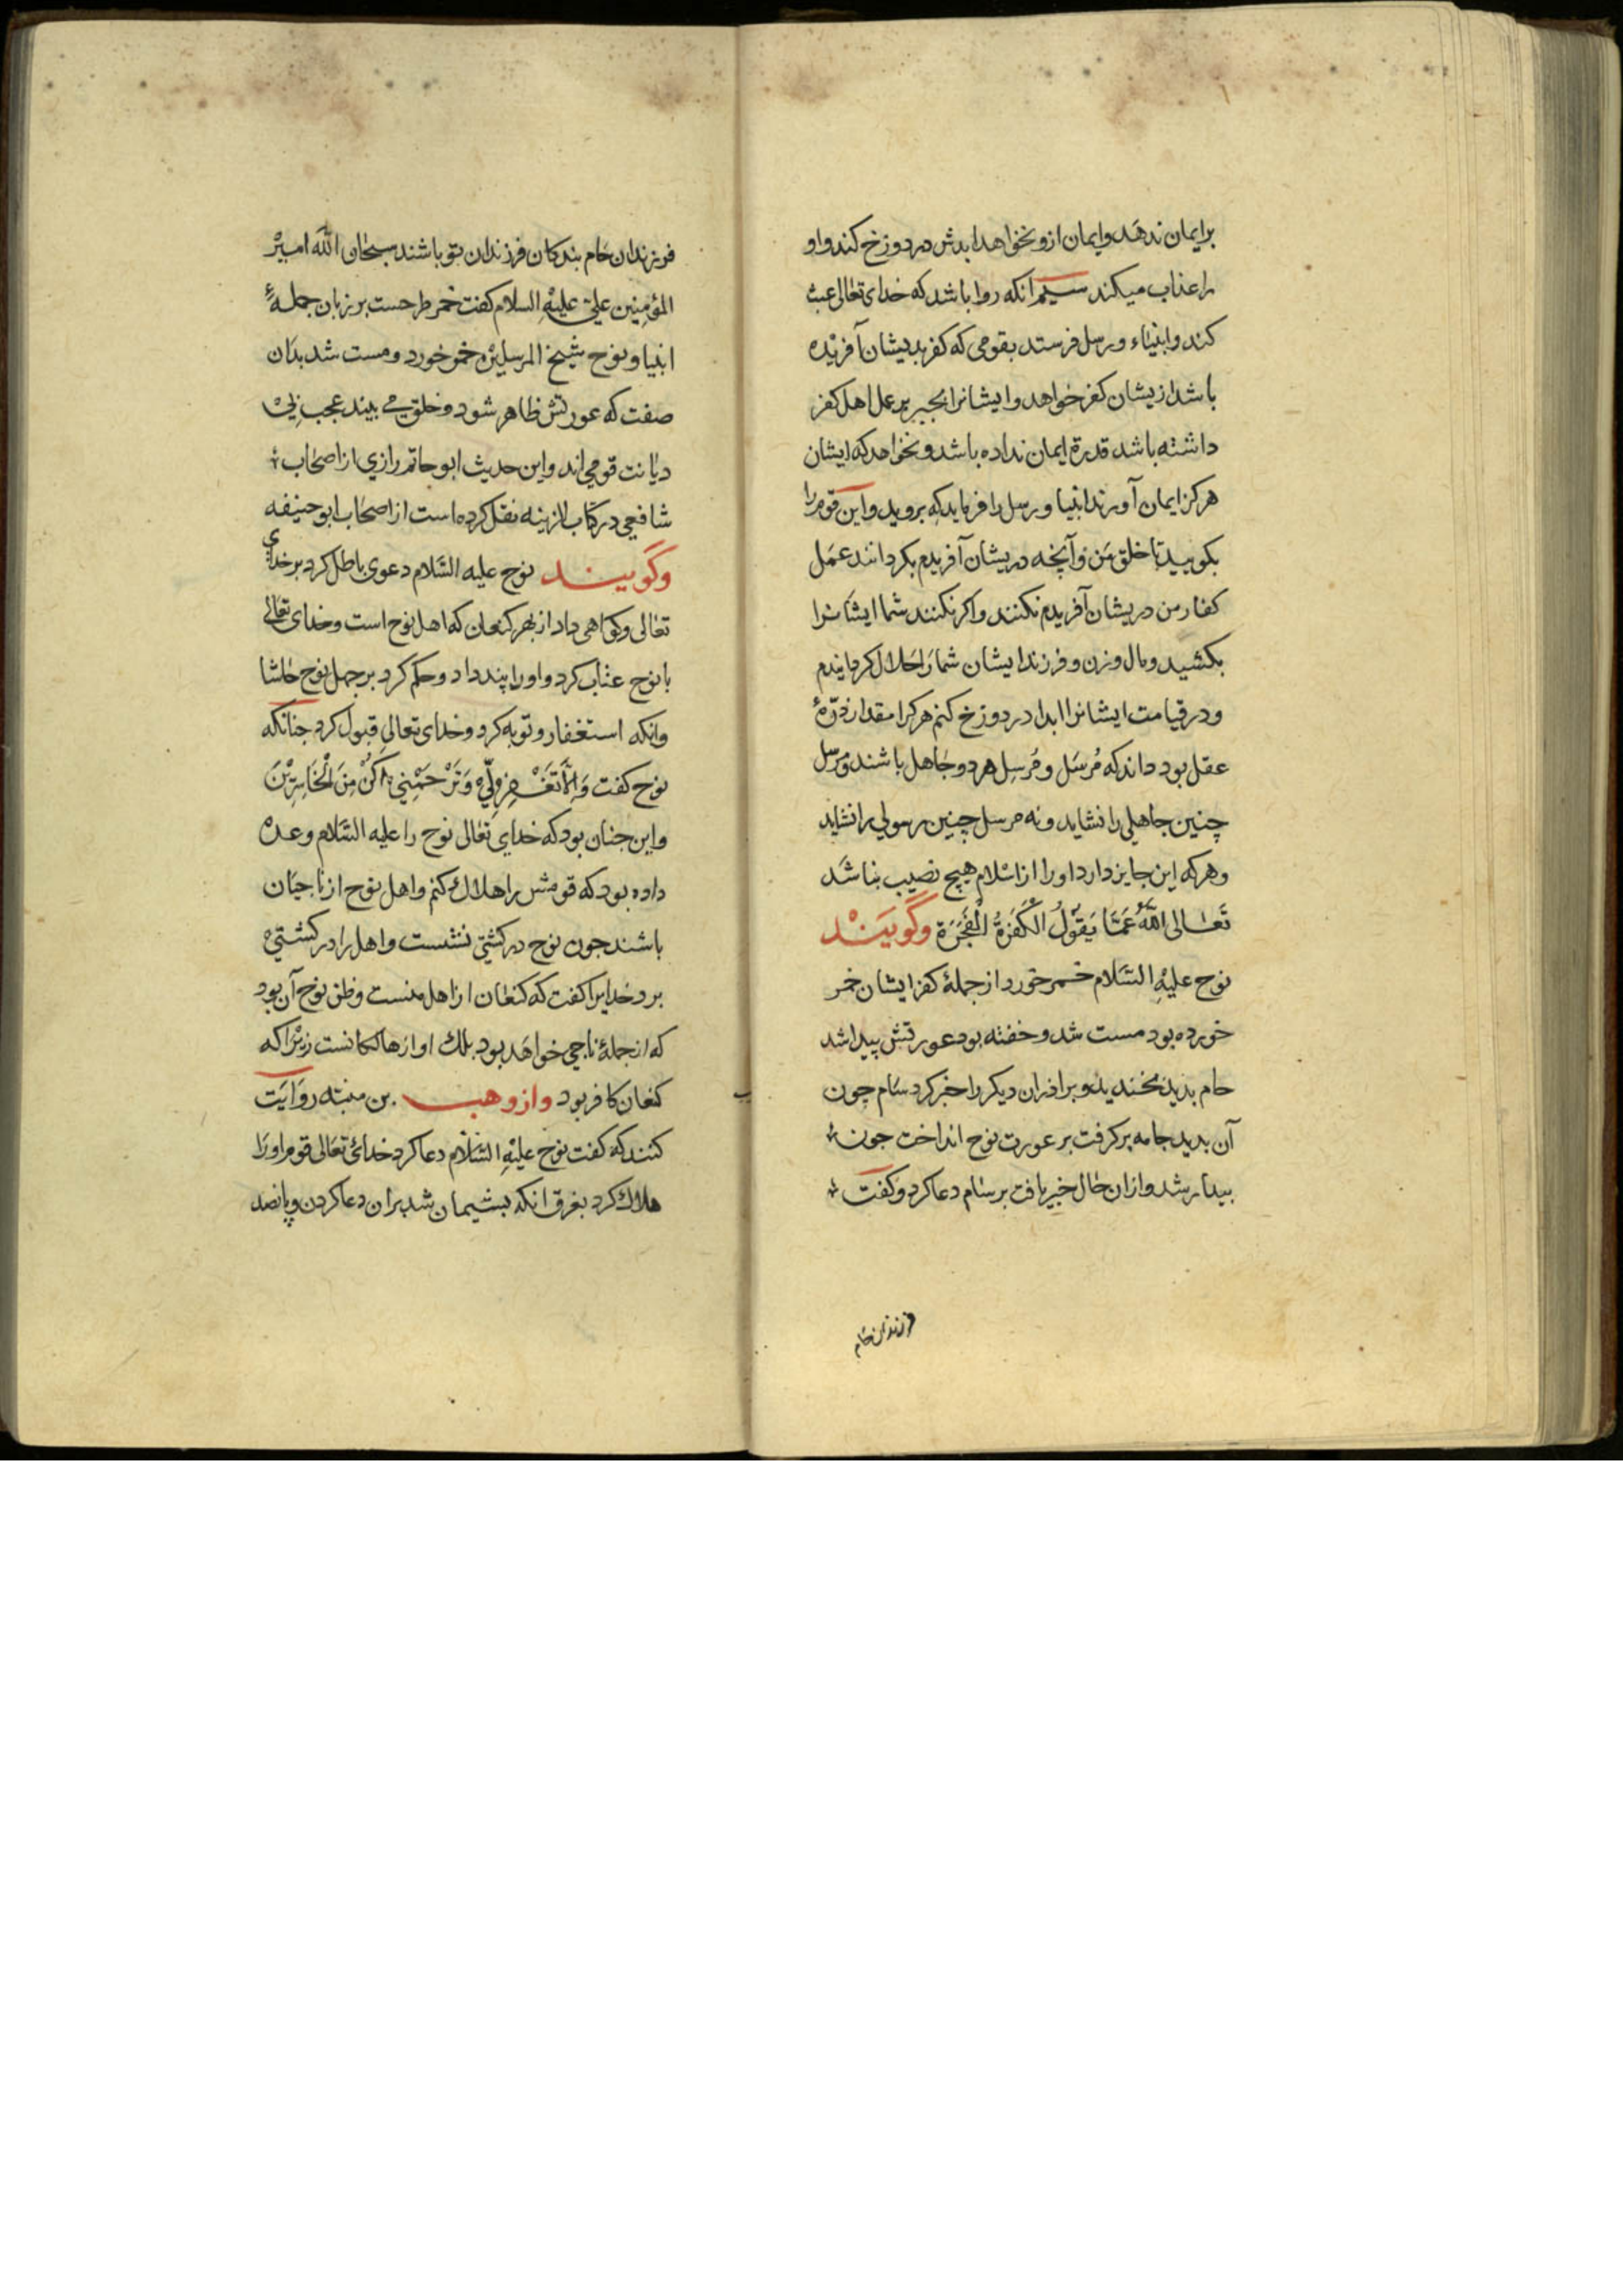 برایمان ندهد وایمان ازو نخواهد ابدش در دوزخ کند و او
را عذاب میکند سیم انکه روا باشد که خدای تعالی عبث
کند و انبیاء و رسل فرستد بقومی که کفر بدیشان آفریده
باشد ازیشان کفر خواهد و ایشانرا بجبر بر عمل اهل کفر
داشته باشد قدرة ایمان نداده باشد و نخواهد که ایشان
هرکز ایمان آورند انبیا و رسل را فرماید که بروید و این قوم را
بکویید تا خلق من و آنچه دریشان آفریدم بکردانند عمل
کفار من دریشان آفریدم نکنند و اکر نکنند شما ایشانرا
بکشید و مال و زن و فرزند ایشان شما را حلال کردانیدم
و در قیامت ایشانرا ابدا در دوزخ کنم هرکرا مقدار ذرّۀ
عقل بود داند که مُرسَل و مُرسِل هر دو جاهل باشند و مرسل
چنین جاهلی را نشاید و نه مرسل چنین رسولی را نشاید
و هر که این جایز دارد او را از اسلام هیچ نصیب نباشد
تَعٰالی اللّٰهُ عَمَّا یَقُولُ الْکَفَرَةُ الْفَجَرَة وگویَنْد
نوح علیهِ السَّلام خمر خورد از جملۀ کفر ایشان خمر
خورده بود مست شد و خفته بود عورتش پیدا شد
حام بدید بخندید و برادران دیکر را خبر کرد سام چون
آن بدید جامه برکرفت بر عورت نوح انداخت جون
بیدار شد و ازان حال خبر یافت بر سام دعا کرد و کفت
فرزندان حام
فرزندان حام بندکان فرزندان تو باشند سبحان اللّٰه امیر
المؤمِنین علی علیْهِ السلام کفت خمر طرحست بر زبان جملۀ
انبیا و نوح شیخ المرسلین خمر خورد و مست شد بدان
صفت که عورتش ظاهر شود و خلق می بیند عجب بی
دیانت قومی اند و این حدیث ابو حاتم رازی از اصحاب
شافعی در کتاب الزینه نقل کرده است از اصحاب ابو حنیفه
وگویند نوح علیه السّلام دعوی باطل کرد بر خدای
تعالی و کواهی داد از بهر کنعان که اهل نوح است و خدای تعالی
با نوح عتاب کرد و او را پند داد و حکم کرد بر جهل نوح حاشا
وانکه استغفار و توبه کرد و خدای تعالی قبول کرد جنانکه
نوح کفت وَاِلَّا تَغْفِرْلِی وَتَرْحَمْنِی اَکُنْ مِنَ الْخَاسِرِیْنَ
و این جنان بود که خدای تعالی نوح را علیه السّلام وعده
داده بود که قومش را هلاک کنم و اهل نوح از ناجیان
باشند جون نوح در کشتی نشست و اهل را در کشتی
برد خدایرا کفت که کنعان از اهل منست و ظن نوح آن بود
که از جملۀ ناجی خواهد بود بلک او از هالکانست زیرا که
کنعان کافر بود واز وهب بن منبّه روایَت
کنند که کفت نوح علیْهِ السَّلام دعا کرد خدائ تعالی قوم او را
هلاک کرد بغرق انکه پشیمان شد بران دعا کردن و پانصد